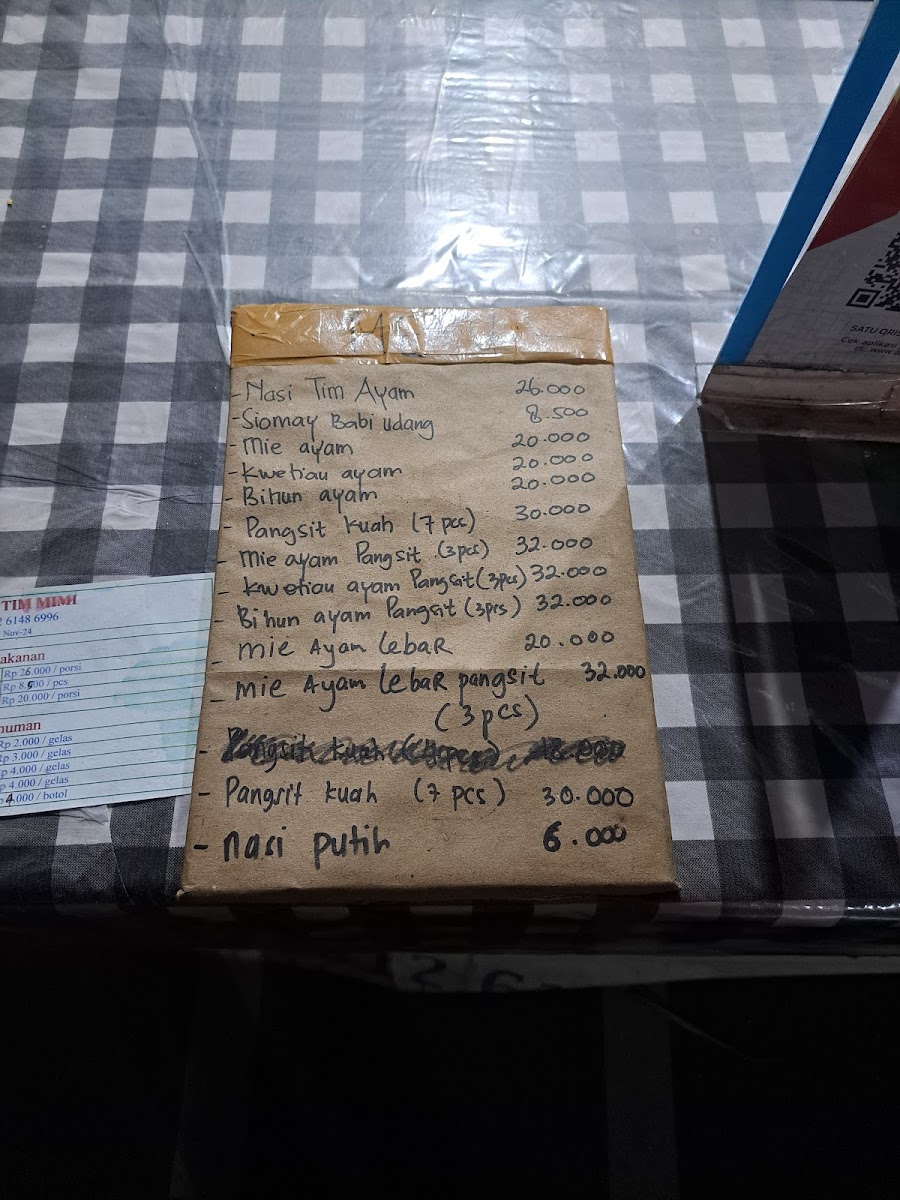 - Nasi Tim Ayam 26.000
- Siomay Babi udang 8.500
- Mie ayam 20.000
- Kwetiau ayam 20.000
- Bihun ayam 20.000
- Pangsit kuah (7 pcs) 30.000
- Mie ayam Pangsit (3pcs) 32.000
- Kwetiau ayam Pangsit (3pcs) 32.000
- Bihun ayam Pangsit (3prs) 32.000
- mie Ayam lebaR 20.000
- mie Ayam lebaR pangsit 32.000
(3 pcs)
- Pangsit kuah (7 pcs) 30.000
- nasi putih 6.000
TIM MIMI
6148 6996
Nov-24
akanan
Rp 26.000 / porsi
Rp 8.500 / pcs
Rp 20.000 / porsi
numan
Rp 2.000 / gelas
Rp 3.000 / gelas
p 4.000 / gelas
p 4.000 / gelas
4.000 / botol
SATU QRIS
Cek aplikasi